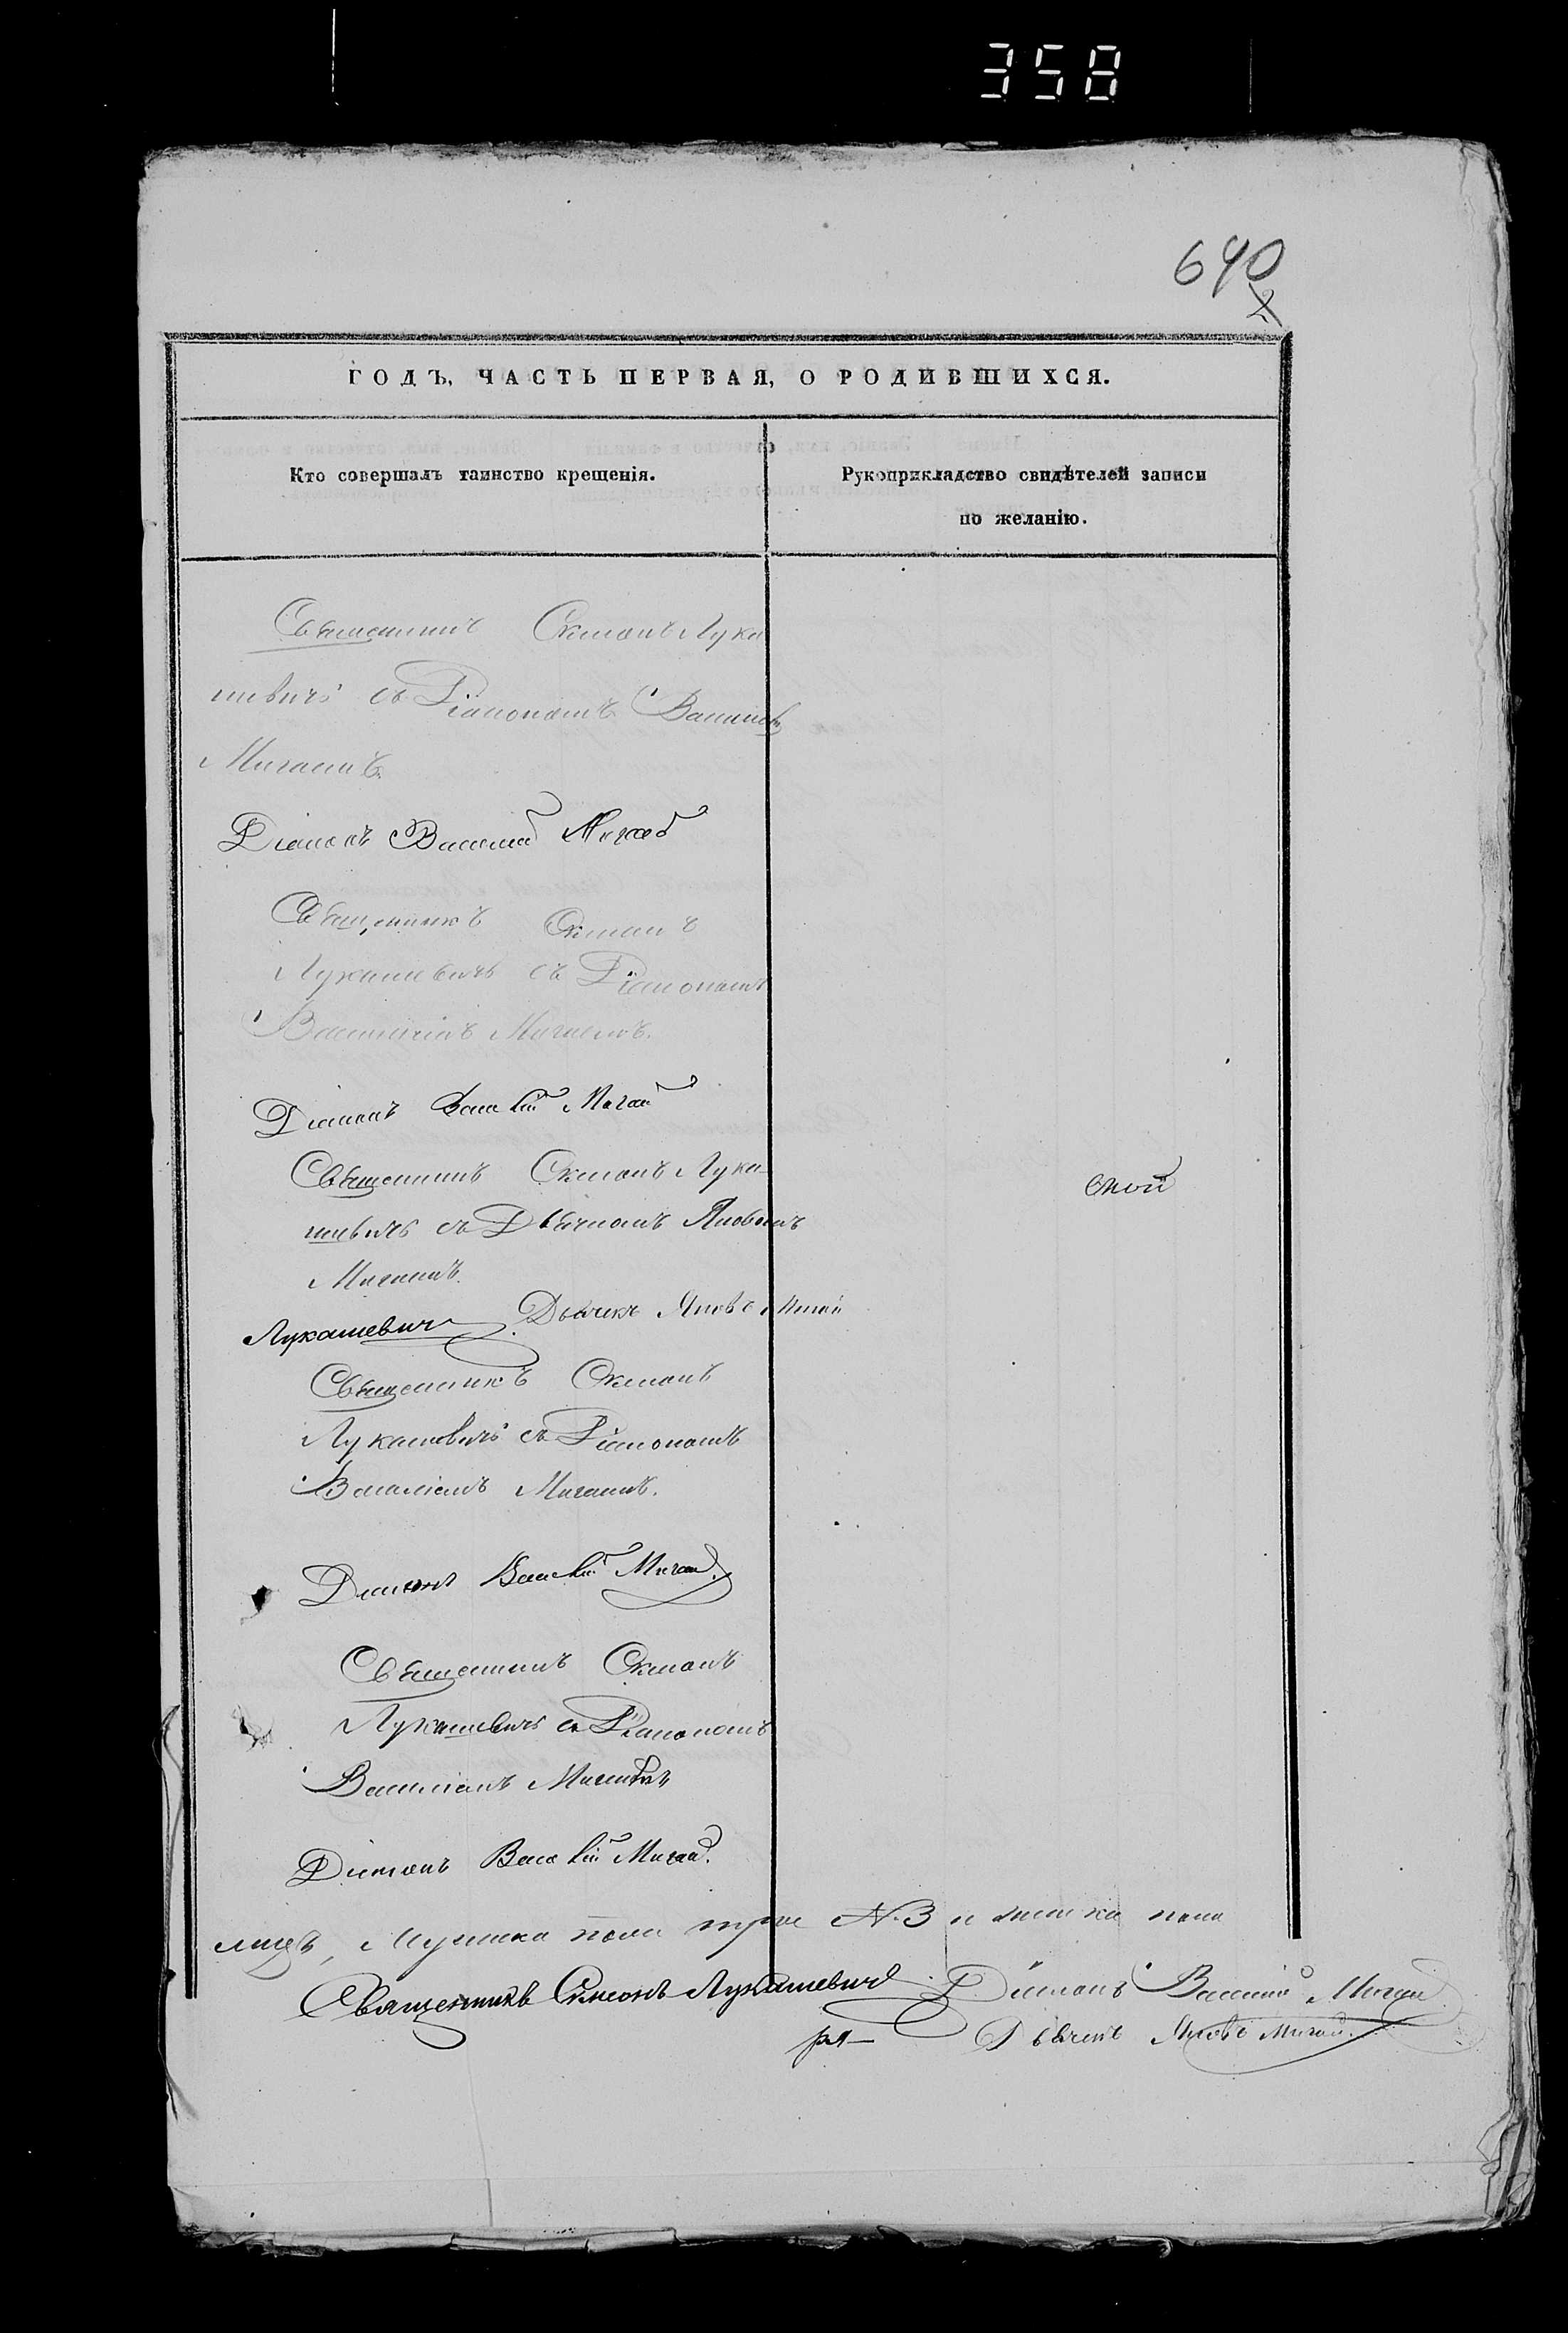 358
640
2
ГОДЪ, ЧАСТЬ ПЕРВАЯ, О РОДИВШИХСЯ.
Кто совершалъ таинство крещенія.
Рукоприкладство свидѣтелей записи
по желанію.
Священникъ Симонъ Лука
шевичъ съ Діакономъ Василіемъ
Мигаемъ.
Діаконъ Василій Мигай
Священникъ Симонъ
Лукашевичъ съ Діакономъ
Василіемъ Мигаемъ.
Діаконъ Василій Мигай
Священникъ Симонъ Лука-
шевичъ съ Дьячкомъ Яковомъ
Мигаемъ.
ской
Лукашевичъ Дьячекъ Яковъ Мигай
Священникъ Симонъ
Лукашевичъ съ Діакономъ
Василіемъ Мигаемъ.
Діаконъ Василій Мигай.
Священникъ Симонъ
Лукашевичъ съ Діакономъ
Василіемъ Мигаемъ
Діаконъ Василій Мигай.
Мужска пола трое №3 и пола
Священникъ Симонъ Лукашевичъ Діаконъ Василій Мигай
Дьячекъ Яковъ Мигай.